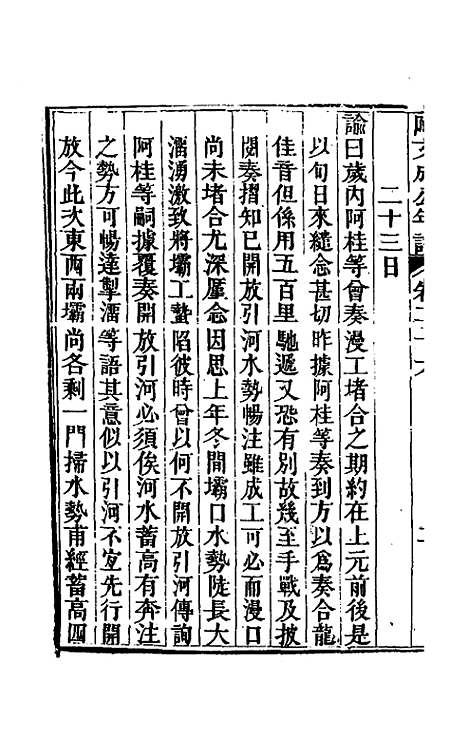 阿文成公年譜 卷二十六 二
二十三日
諭曰歲內阿桂等曾奏漫工堵合之期約在上元前後是
以旬日來縫念甚切昨據阿桂等奏到方以爲奏合龍
佳音但係用五百里馳遞又恐有別故幾至手戰及披
閱奏摺知已開放引河水勢暢注雖成工可必而漫口
尚未堵合尤深廑念因思上年冬間壩口水勢陡長大
溜湧激致將壩工蟄陷彼時曾以何不開放引河傳詢
阿桂等嗣據覆奏開放引河必須俟河水蓄高有奔注
之勢方可暢達掣溜等語其意似以引河不宜先行開
放今此次東西兩壩尚各剩一門掃水勢甫經蓄高四